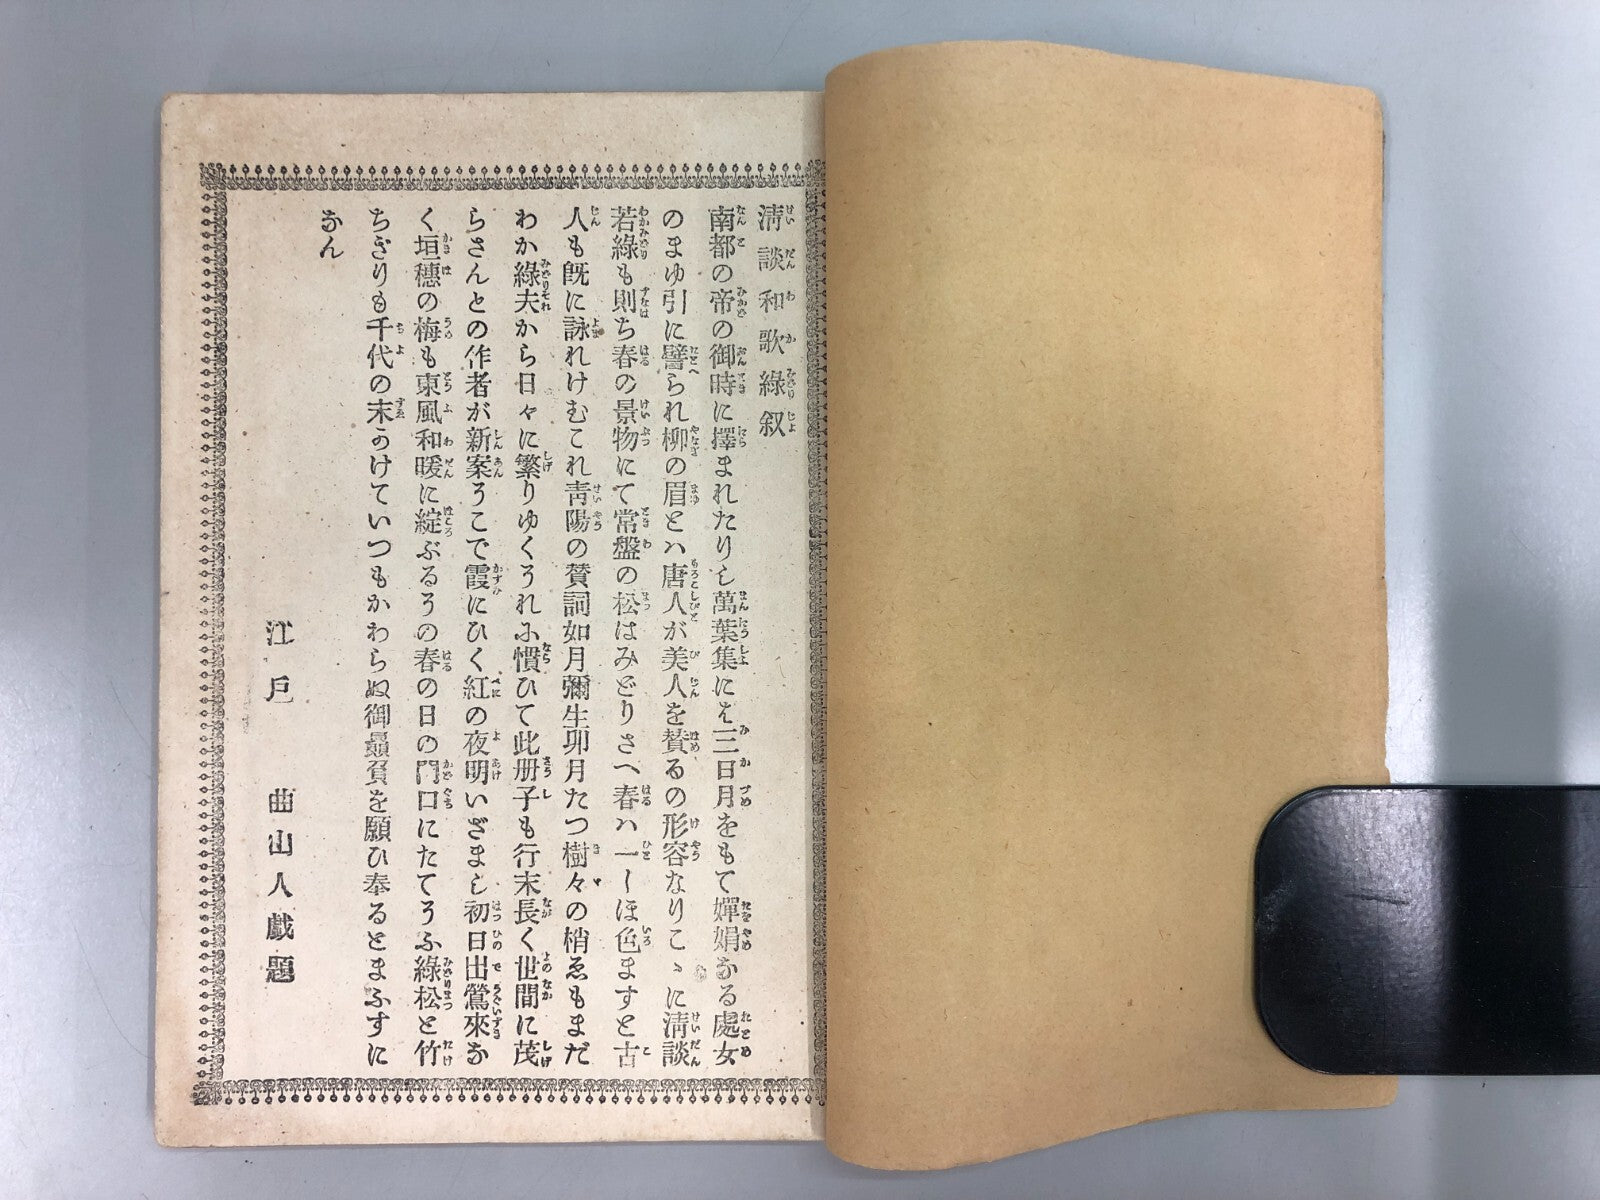 淸談和歌綠叙
南都の帝の御時に擇まれたりし萬葉集にを三日月をもて嬋娟なる處女
のまゆ引に譬られ柳の眉とハ唐人が美人を賛るの形容なりこゝに淸談
若綠も則ち春の景物にて常盤の松はみどりさへ春ハ一しほ色ますと古
人も旣に詠れけむこれ靑陽の賛詞如月彌生卯月たつ樹々の梢ゑもまだ
わか綠夫から日々に繁りゆくろれふ慣ひて此册子も行末長く世間に茂
らさんとの作者が新案ろこで霞にひく紅の夜明いざまし初日出鶯來な
く垣穗の梅も東風和暖に綻ぶるろの春の日の門口にたてろふ綠松と竹
ちぎりも千代の末かけていつもかわらぬ御贔負を願ひ奉るとまふすに
なん
江戶 曲山人戱題